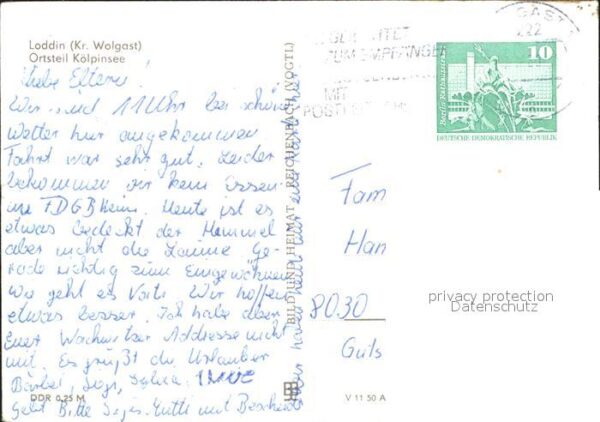 Loddin (Kr. Wolgast)
Ortsteil Kölpinsee
Liebe Eltern!
Wir sind 11 Uhr bei schön
Wetter hier angekommen
Fahrt war sehr gut. Leider
bekommen wir kein Essen
im FDGB Heim. Heute ist es
etwas bedeckt der Himmel
aber nicht die Laune Ge-
rade richtig zum Eingewöhnen
Wie geht es Vati. Wir hoffen
etwas besser. Ich habe aber
Euer Wachwitzer Addresse nicht
mit. Es grüßt die Urlauber
Bärbel, Sylvia
Gebt Bitte Mutti mit Bescheid
DDR 0,25 M
BILD UND HEIMAT · REICHENBACH (VOGTL)
V 11 50 A
GAST
222
ZUM EMPFÄNGER
MIT
10
Berlin Rathausstraße
DEUTSCHE DEMOKRATISCHE REPUBLIK
Fam
Han
8030
Guts
privacy protection
Datenschutz